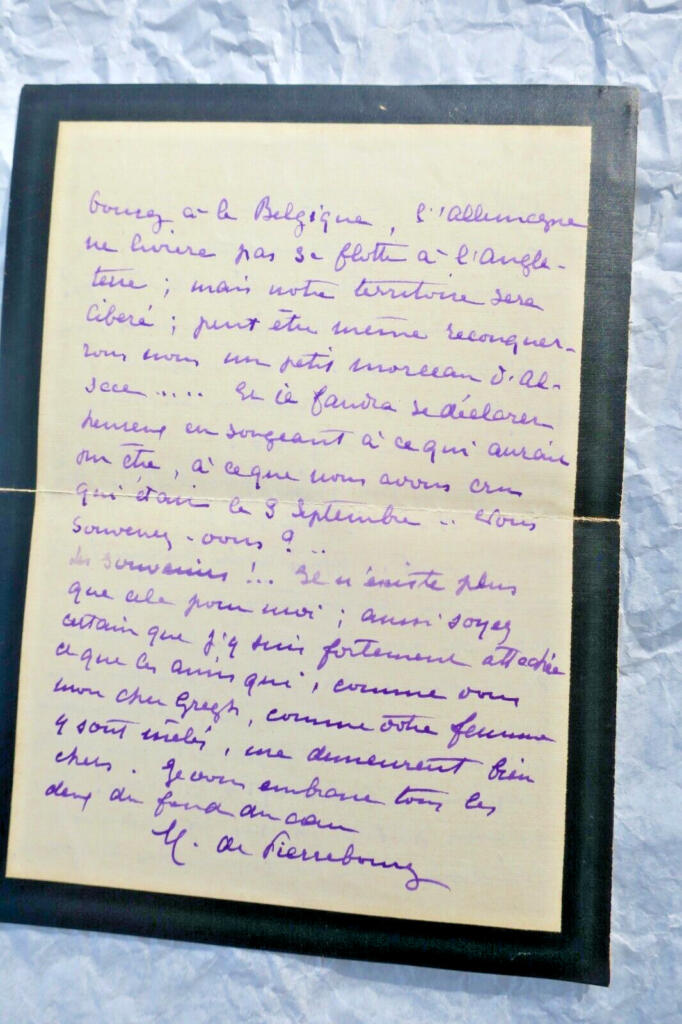 à la Belgique, l'Allemagne
ne livrera pas sa flotte à l'Angle-
terre ; mais notre territoire sera
libéré ; peut être même reconquer-
rons nous un petit morceau d'Al-
sace ..... Et il faudra se déclarer
heureux en songeant à ce qui aurait
pu être, à ce que nous avons cru
qui était le 3 Septembre .. Vous
souvenez-vous ? ..
Les souvenirs !.. Il n'existe plus
que cela pour moi ; aussi soyez
certain que j'y suis fortement attachée
et que les amis qui, comme vous
mon cher Gregh, comme votre femme
y sont mêlés, me demeurent bien
chers. Je vous embrasse tous les
deux du fond du cœur
M. de Pierrebourg